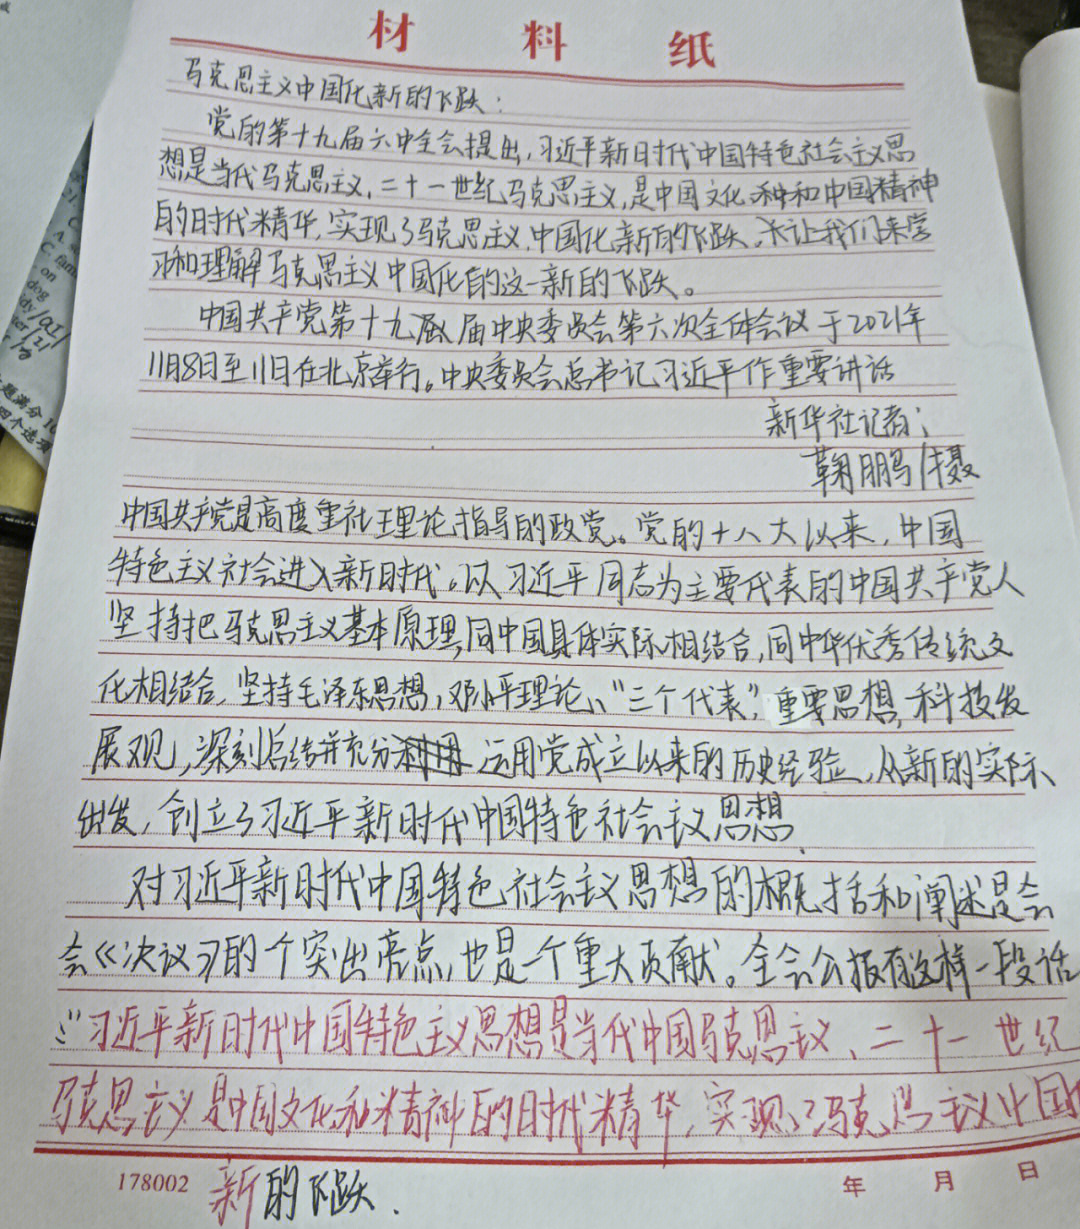 材料纸
马克思主义中国化新的飞跃：
党的第十九届六中全会提出,习近平新时代中国特色社会主义思
想是当代马克思主义,二十一世纪马克思主义,是中国文化和中国精神
的时代精华,实现了马克思主义,中国化新的飞跃。让我们来学
习和理解马克思主义中国化的这一新的飞跃。
中国共产党第十九届中央委员会第六次全体会议于2021年
11月8日至11日在北京举行。中央委员会总书记习近平作重要讲话
新华社记者；
鞠鹏/摄
中国共产党是高度重社理论指导的政党。党的十八大以来,中国
特色主义社会进入新时代。以习近平同志为主要代表的中国共产党人
坚持把马克思主义基本原理,同中国具体实际相结合,同中华优秀传统文
化相结合,坚持毛泽东思想,邓小平理论、“三个代表”,重要思想,科技发
展观,深刻总结并充分运用党成立以来的历史经验,从新的实际
出发,创立了习近平新时代中国特色社会主义思想.
对习近平新时代中国特色社会主义思想的概括和阐述是会
会《决议》的个突出亮点,也是一个重大贡献。全会公报有这样一段话
:“习近平新时代中国特色主义思想是当代中国马克思主义、二十一世纪
马克思主义是中国文化和精神的时代精华,实现了马克思主义中国
新的飞跃.
178002
年 月 日